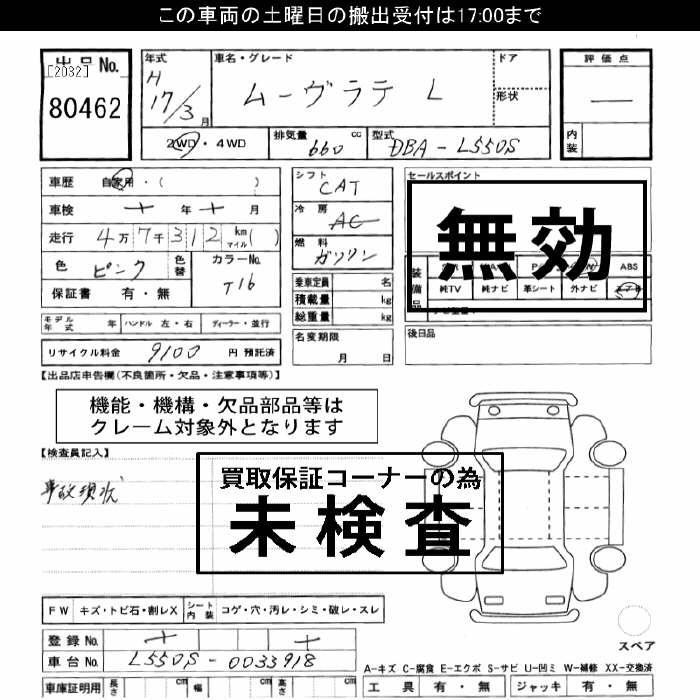 この車両の土曜日の搬出受付は17:00まで
出品No.
[2032]
80462
年式
H
17/3月
車名・グレード
ムーヴラテ L
ドア
形状
評価点
内装
2WD・4WD
排気量
660 cc
型式
DBA - L550S
車歴 自家用・( )
車検 年 月
走行 4万7千312 km マイル( )
色 ピンク 色替
カラーNo. T16
保証書 有・無
シフト CAT
冷房 AC
燃料 ガソリン
乗車定員 名
積載量 kg
総重量 kg
名変期限
月 日
セールスポイント
無効
装備品
ABS
純TV 純ナビ 革シート 外ナビ
後日品
モデル年式 年 ハンドル 左・右 ディーラー・並行
リサイクル料金 9100 円 預託済
【出品店申告欄(不良箇所・欠品・注意事項等)】
機能・機構・欠品部品等は
クレーム対象外となります
【検査員記入】
事故現状
買取保証コーナーの為
未検査
FW キズ・トビ石・割レX シート内装 コゲ・穴・汚レ・シミ・破レ・スレ
登録No.
車台No. L550S - 0033918
車庫証明用 長さ cm 幅 cm 高さ cm
スペア
A-キズ C-腐食 E-エクボ S-サビ U-凹ミ W-補修 XX-交換済
工具 有・無 ジャッキ 有・無